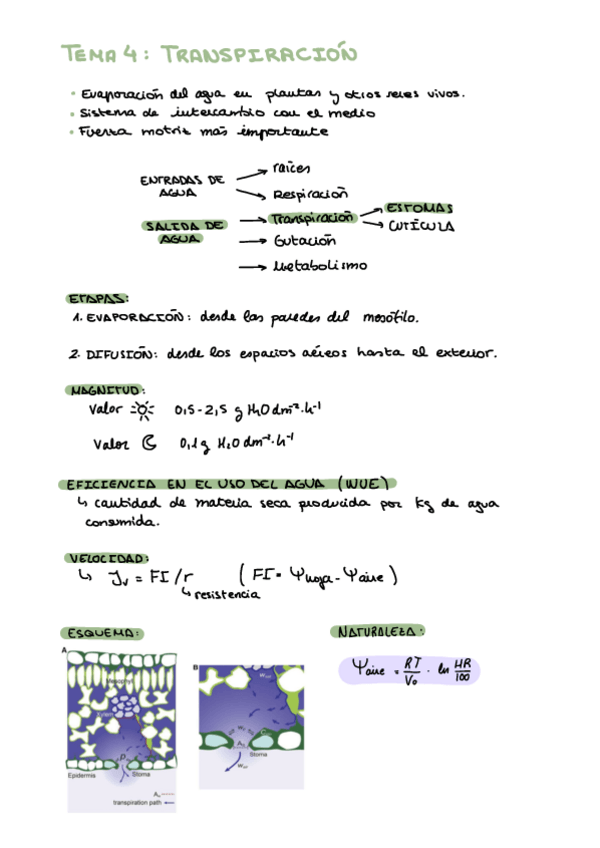 TEMA 4: TRANSPIRACIÓN
• Evaporación del agua en plantas y otros seres vivos.
• Sistema de intercambio con el medio
• Fuerza motriz más importante
ENTRADAS DE AGUA → raíces
→ Respiración
SALIDA DE AGUA → Transpiración → ESTOMAS
→ CUTÍCULA
→ Gutación
→ Metabolismo
ETAPAS:
1. EVAPORACIÓN: desde las paredes del mesófilo.
2. DIFUSIÓN: desde los espacios aéreos hasta el exterior.
MAGNITUD:
Valor ☼ 0,5-2,5 g H2O dm⁻²·h⁻¹
Valor ☾ 0,1 g H2O dm⁻²·h⁻¹
EFICIENCIA EN EL USO DEL AGUA (WUE)
↳ cantidad de materia seca producida por kg de agua
consumida.
VELOCIDAD:
↳ Jv = FI/r (FI = Ψhoja - Ψaire)
↳ resistencia
ESQUEMA:
NATURALEZA:
Ψaire = RT/V₀ · ln HR/100
A
Mesophyll
Xylem
Epidermis
Stoma
transpiration path
B
Stoma